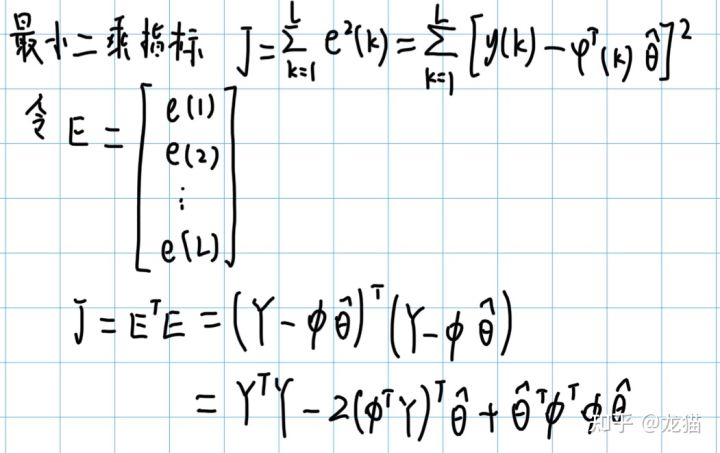 最小二乘指标 J=∑_{k=1}^{L} e²(k)=∑_{k=1}^{L} [y(k)-φᵀ(k)θ̂]²
令 E = [e(1) e(2) ⋮ e(L)]
J = EᵀE = (Y-ϕθ̂)ᵀ(Y-ϕθ̂)
= YᵀY-2(ϕᵀY)ᵀθ̂+θ̂ᵀϕᵀϕθ̂
知乎 @龙猫